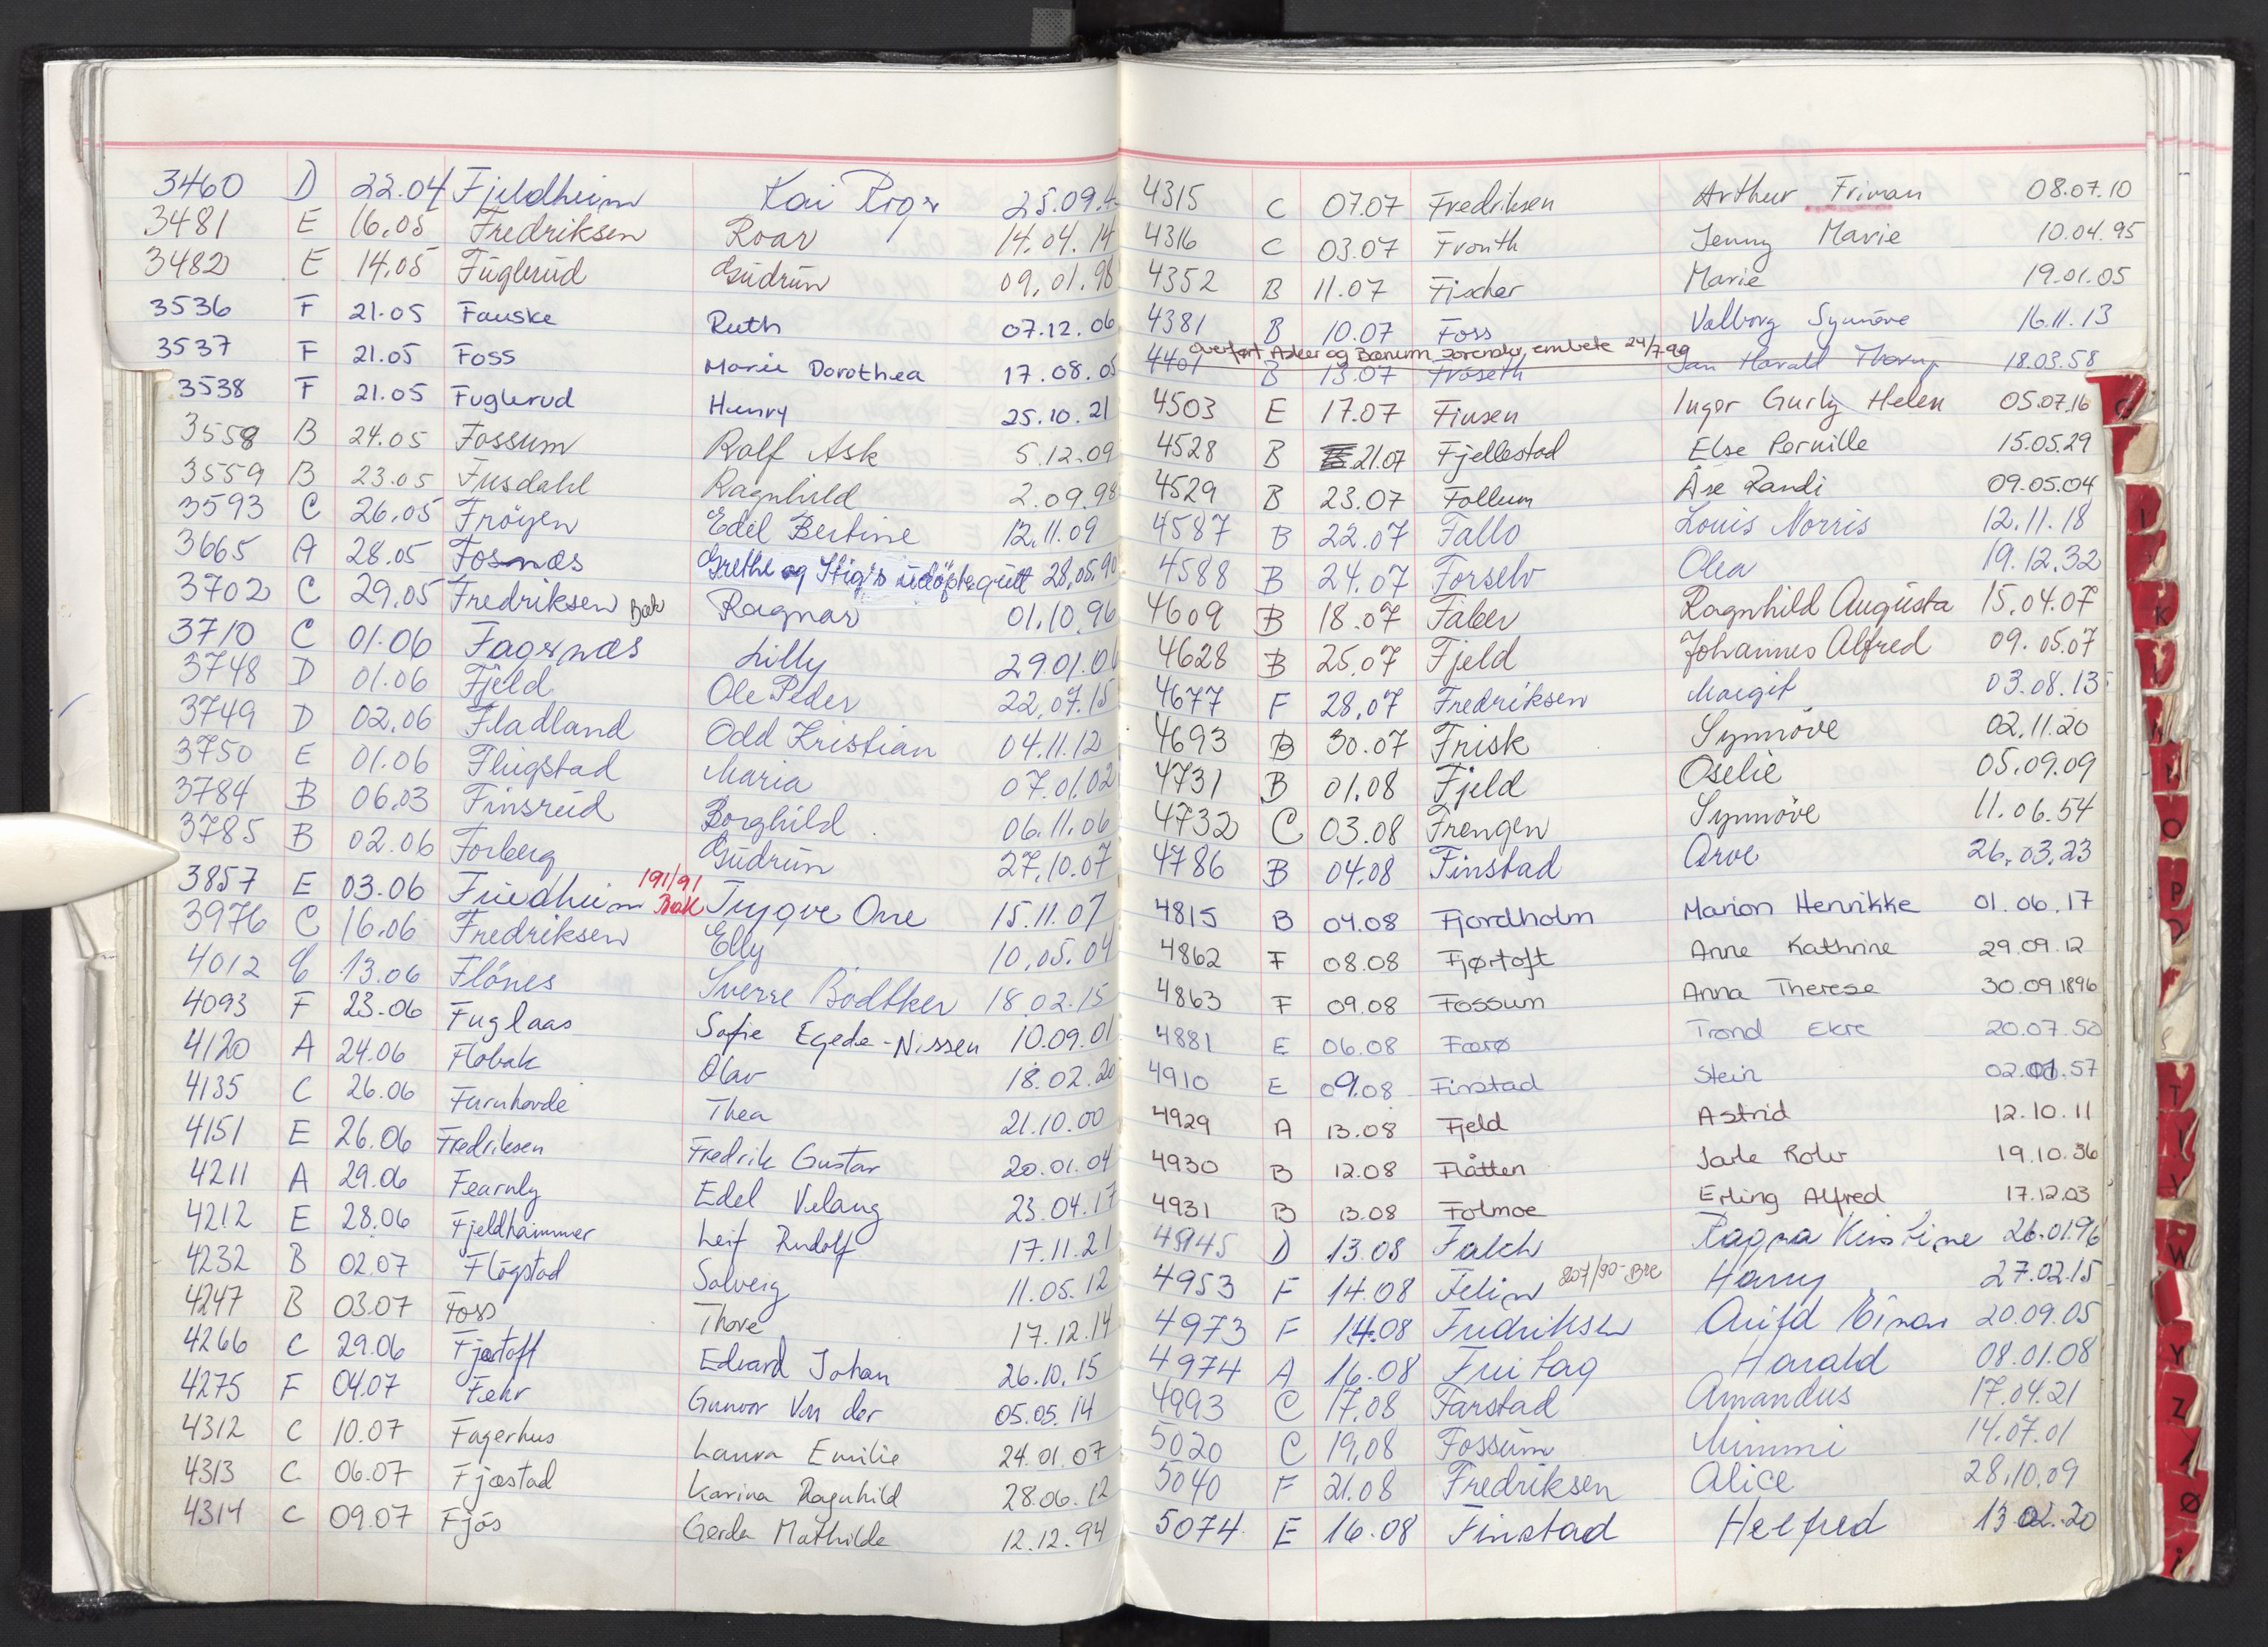 3460 D 22.04 Fjeldheim Kai Roger 25.09.4
3481 E 16.05 Fredriksen Roar 14.04.14
3482 E 14.05 Fuglerud Gudrun 09.01.98
3536 F 21.05 Fauske Ruth 07.12.06
3537 F 21.05 Foss Marie Dorothea 17.08.05
3538 F 21.05 Fuglerud Henry 25.10.21
3558 B 24.05 Fossum Rolf Ask 5.12.09
3559 B 23.05 Fusdahl Ragnhild 2.09.98
3593 C 26.05 Frøyen Edel Bertine 12.11.09
3665 A 28.05 Fosnæs Grethe og Stig's udøpte gutt 28.05.90
3702 C 29.05 Fredriksen Bok Ragnar 01.10.96
3710 C 01.06 Fagernæs Lilly 29.01.0
3748 D 01.06 Fjeld Ole Peder 22.07.15
3749 D 02.06 Fladland Odd Kristian 04.11.12
3750 E 01.06 Flugstad Maria 07.01.02
3784 B 06.03 Finsrud Borghild 06.11.06
3785 B 02.06 Forberg Gudrun 27.10.07
3857 E 03.06 Friedheim 191/91 Bok Trygve One 15.11.07
3976 C 16.06 Fredriksen Elly 10.05.04
4012 C 13.06 Flönes Sverre Bödtker 18.02.15
4093 F 23.06 Fuglaas Sofie Egede-Nissen 10.09.01
4120 A 24.06 Flobak Olav 18.02.20
4135 C 26.06 Furuhovde Thea 21.10.00
4151 E 26.06 Fredriksen Fredrik Gustav 20.01.04
4211 A 29.06 Fearnly Edel Velang 23.04.17
4212 E 28.06 Fjeldhammer Leif Rudolf 17.11.21
4232 B 02.07 Flögstad Solveig 11.05.12
4247 B 03.07 Foss Thore 17.12.14
4266 C 29.06 Fjørtoft Edvard Johan 26.10.15
4275 F 04.07 Fehr Gunvor Von der 05.05.14
4312 C 10.07 Fagerhus Laura Emilie 24.01.07
4313 C 06.07 Fjæstad Karina Ragnhild 28.06.12
4314 C 09.07 Fjøs Gerda Mathilde 12.12.94
4315 C 07.07 Fredriksen Arthur Friman 08.07.10
4316 C 03.07 Fronth Jenny Marie 10.04.95
4352 B 11.07 Fischer Marie 19.01.05
4381 B 10.07 Foss Valborg Synnøve 16.11.13
overført Asker og Bærum sorenskr. embete 24/7-90
4401 B 13.07 Frøseth Jan Harald Thorup 18.03.58
4503 E 17.07 Finsen Inger Gurly Helen 05.07.16
4528 B 21.07 Fjellestad Else Pernille 15.05.29
4529 B 23.07 Follum Åse Randi 09.05.04
4587 B 22.07 Fallo Louis Norris 12.11.18
4588 B 24.07 Forselv Olea 19.12.32
4609 B 18.07 Faber Ragnhild Augusta 15.04.07
4628 B 25.07 Fjeld Johannes Alfred 09.05.07
4677 F 28.07 Fredriksen Margit 03.08.13
4693 B 30.07 Frisk Synnöve 02.11.20
4731 B 01.08 Fjeld Oselie 05.09.09
4732 C 03.08 Frengen Synnöve 11.06.54
4786 B 04.08 Finstad Arve 26.03.23
4815 B 04.08 Fjordholm Marion Henrikke 01.06.17
4862 F 08.08 Fjørtoft Anne Kathrine 29.09.12
4863 F 09.08 Fossum Anna Therese 30.09.1896
4881 E 06.08 Færø Trond Ekre 20.07.50
4910 E 09.08 Finstad Stein 02.01.57
4929 A 13.08 Fjeld Astrid 12.10.11
4930 B 12.08 Flåtten Jarle Rolv 19.10.36
4931 B 13.08 Folmoe Erling Alfred 17.12.03
4945 D 13.08 Falch Ragna Kirstine 26.01.96
4953 F 14.08 Felin 207/90-Bre Harry 27.02.15
4973 F 14.08 Fredriksen Arild Einar 20.09.05
4974 A 16.08 Freitag Harald 08.01.08
4993 C 17.08 Farstad Amandus 17.04.21
5020 C 19.08 Fossum Mimmi 14.07.01
5040 F 21.08 Fredriksen Alice 28.10.09
5074 E 16.08 Finstad Helfred 13.02.20
G
I
K
L
O
P
T
V
W
Y
Z
Ø